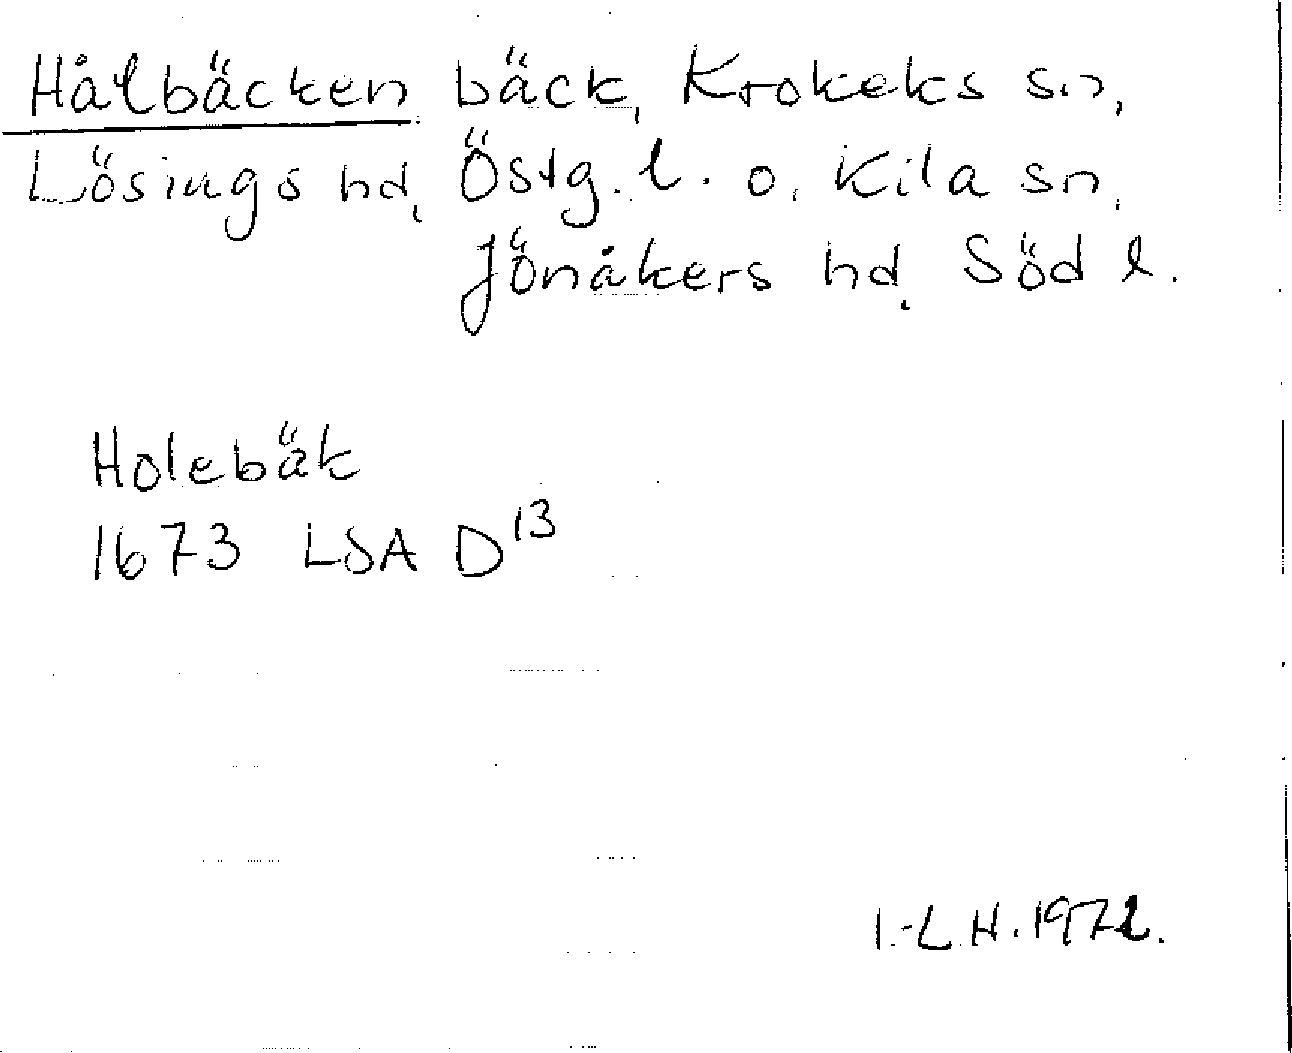 Hålbäcken bäck, Krokeks sn,
Lösings hd, Östg. l. o. Kila sn,
Jönåkers hd, Söd l.
Holebäk
1673 LSA D13
I.-L.H. 1972.